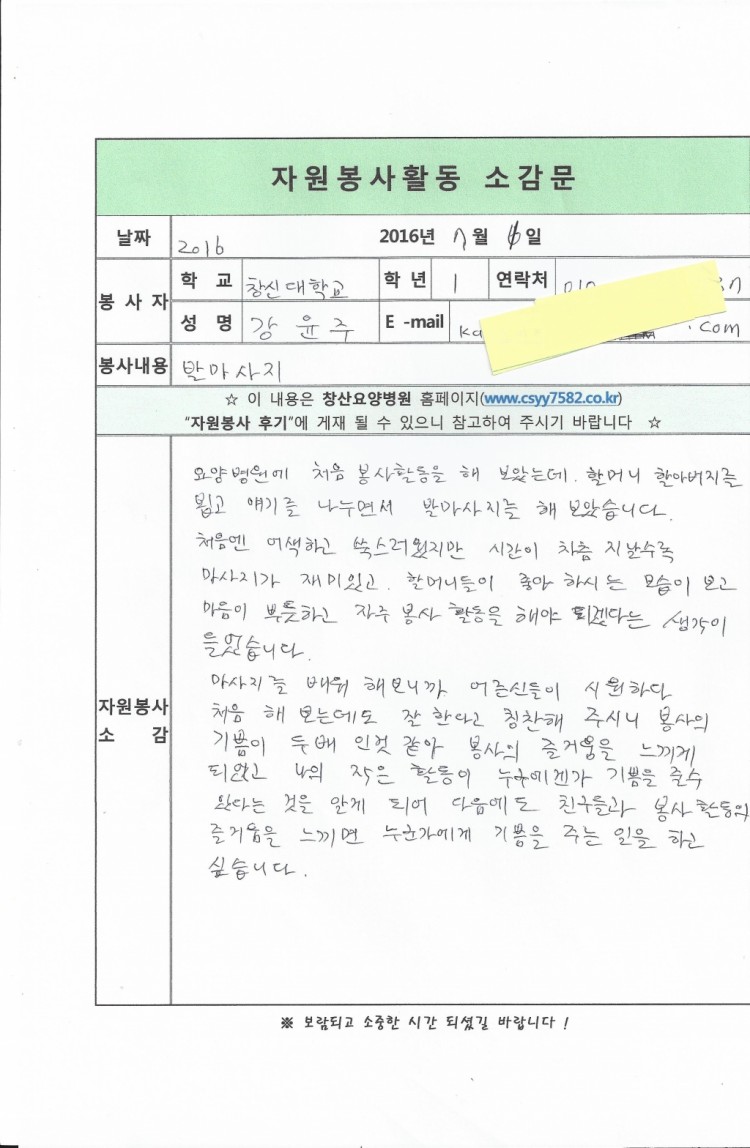 자원봉사활동 소감문
날짜 2016 2016년 7월 6일
봉사자 학 교 창신대학교 학년 1 연락처 010
성 명 강윤주 E-mail ka .com
봉사내용 발마사지
☆ 이 내용은 창산요양병원 홈페이지(www.csyy7582.co.kr)
"자원봉사 후기"에 게재 될 수 있으니 참고하여 주시기 바랍니다 ☆
자원봉사 소 감
요양병원에 처음 봉사활동을 해 보았는데. 할머니 할아버지를
뵙고 얘기를 나누면서 발마사지를 해 보았습니다.
처음엔 어색하고 쑥스러웠지만 시간이 차츰 지날수록
마사지가 재미있고. 할머니들이 좋아 하시는 모습이 보고
마음이 뿌듯하고 자주 봉사 활동을 해야 되겠다는 생각이
들었습니다.
마사지를 배워 해보니까 어르신들이 시원하다
처음 해 보는데도 잘 한다고 칭찬해 주시니 봉사의
기쁨이 두배 인것 같아 봉사의 즐거움을 느끼게
되었고 나의 작은 활동이 누구에겐가 기쁨을 줄수
있다는 것을 알게 되어 다음에도 친구들과 봉사활동의
즐거움을 느끼면 누군가에게 기쁨을 주는 일을 하고
싶습니다.
※ 보람되고 소중한 시간 되셨길 바랍니다 !